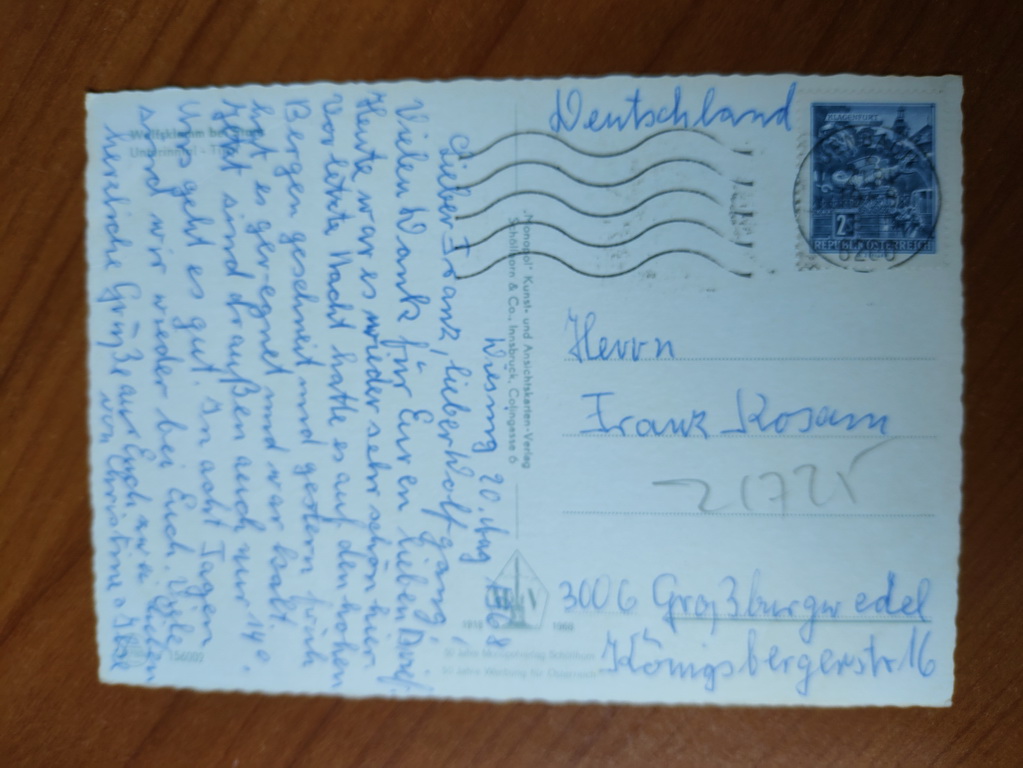 Wöring 20. Aug 1968
Lieber Franz, lieber Wolfgang,
Vielen Dank für Euren lieben Brief.
Heute war es wieder sehr schön hier.
Vorletzte Nacht hatte es auf den hohen
Bergen geschneit und gestern früh
hat es geregnet und war kalt.
Jetzt sind draußen auch nur 14°.
Uns geht es gut. In acht Tagen
sind wir wieder bei Euch. Viele
herzliche Grüße an Euch
von Christine
Unterinntal
156002
"Monopol" Kunst- und Ansichtskarten-Verlag
Schöllhorn & Co., Innsbruck, Colingasse 6
1918 1968
50 Jahre Monopolverlag Schöllhorn
50 Jahre Werbung für Österreich
Deutschland
KLAGENFURT
2
REPUBLIK ÖSTERREICH
Herrn
Franz Kosam
21725
3006 Großburgwedel
Königsbergerstr 16